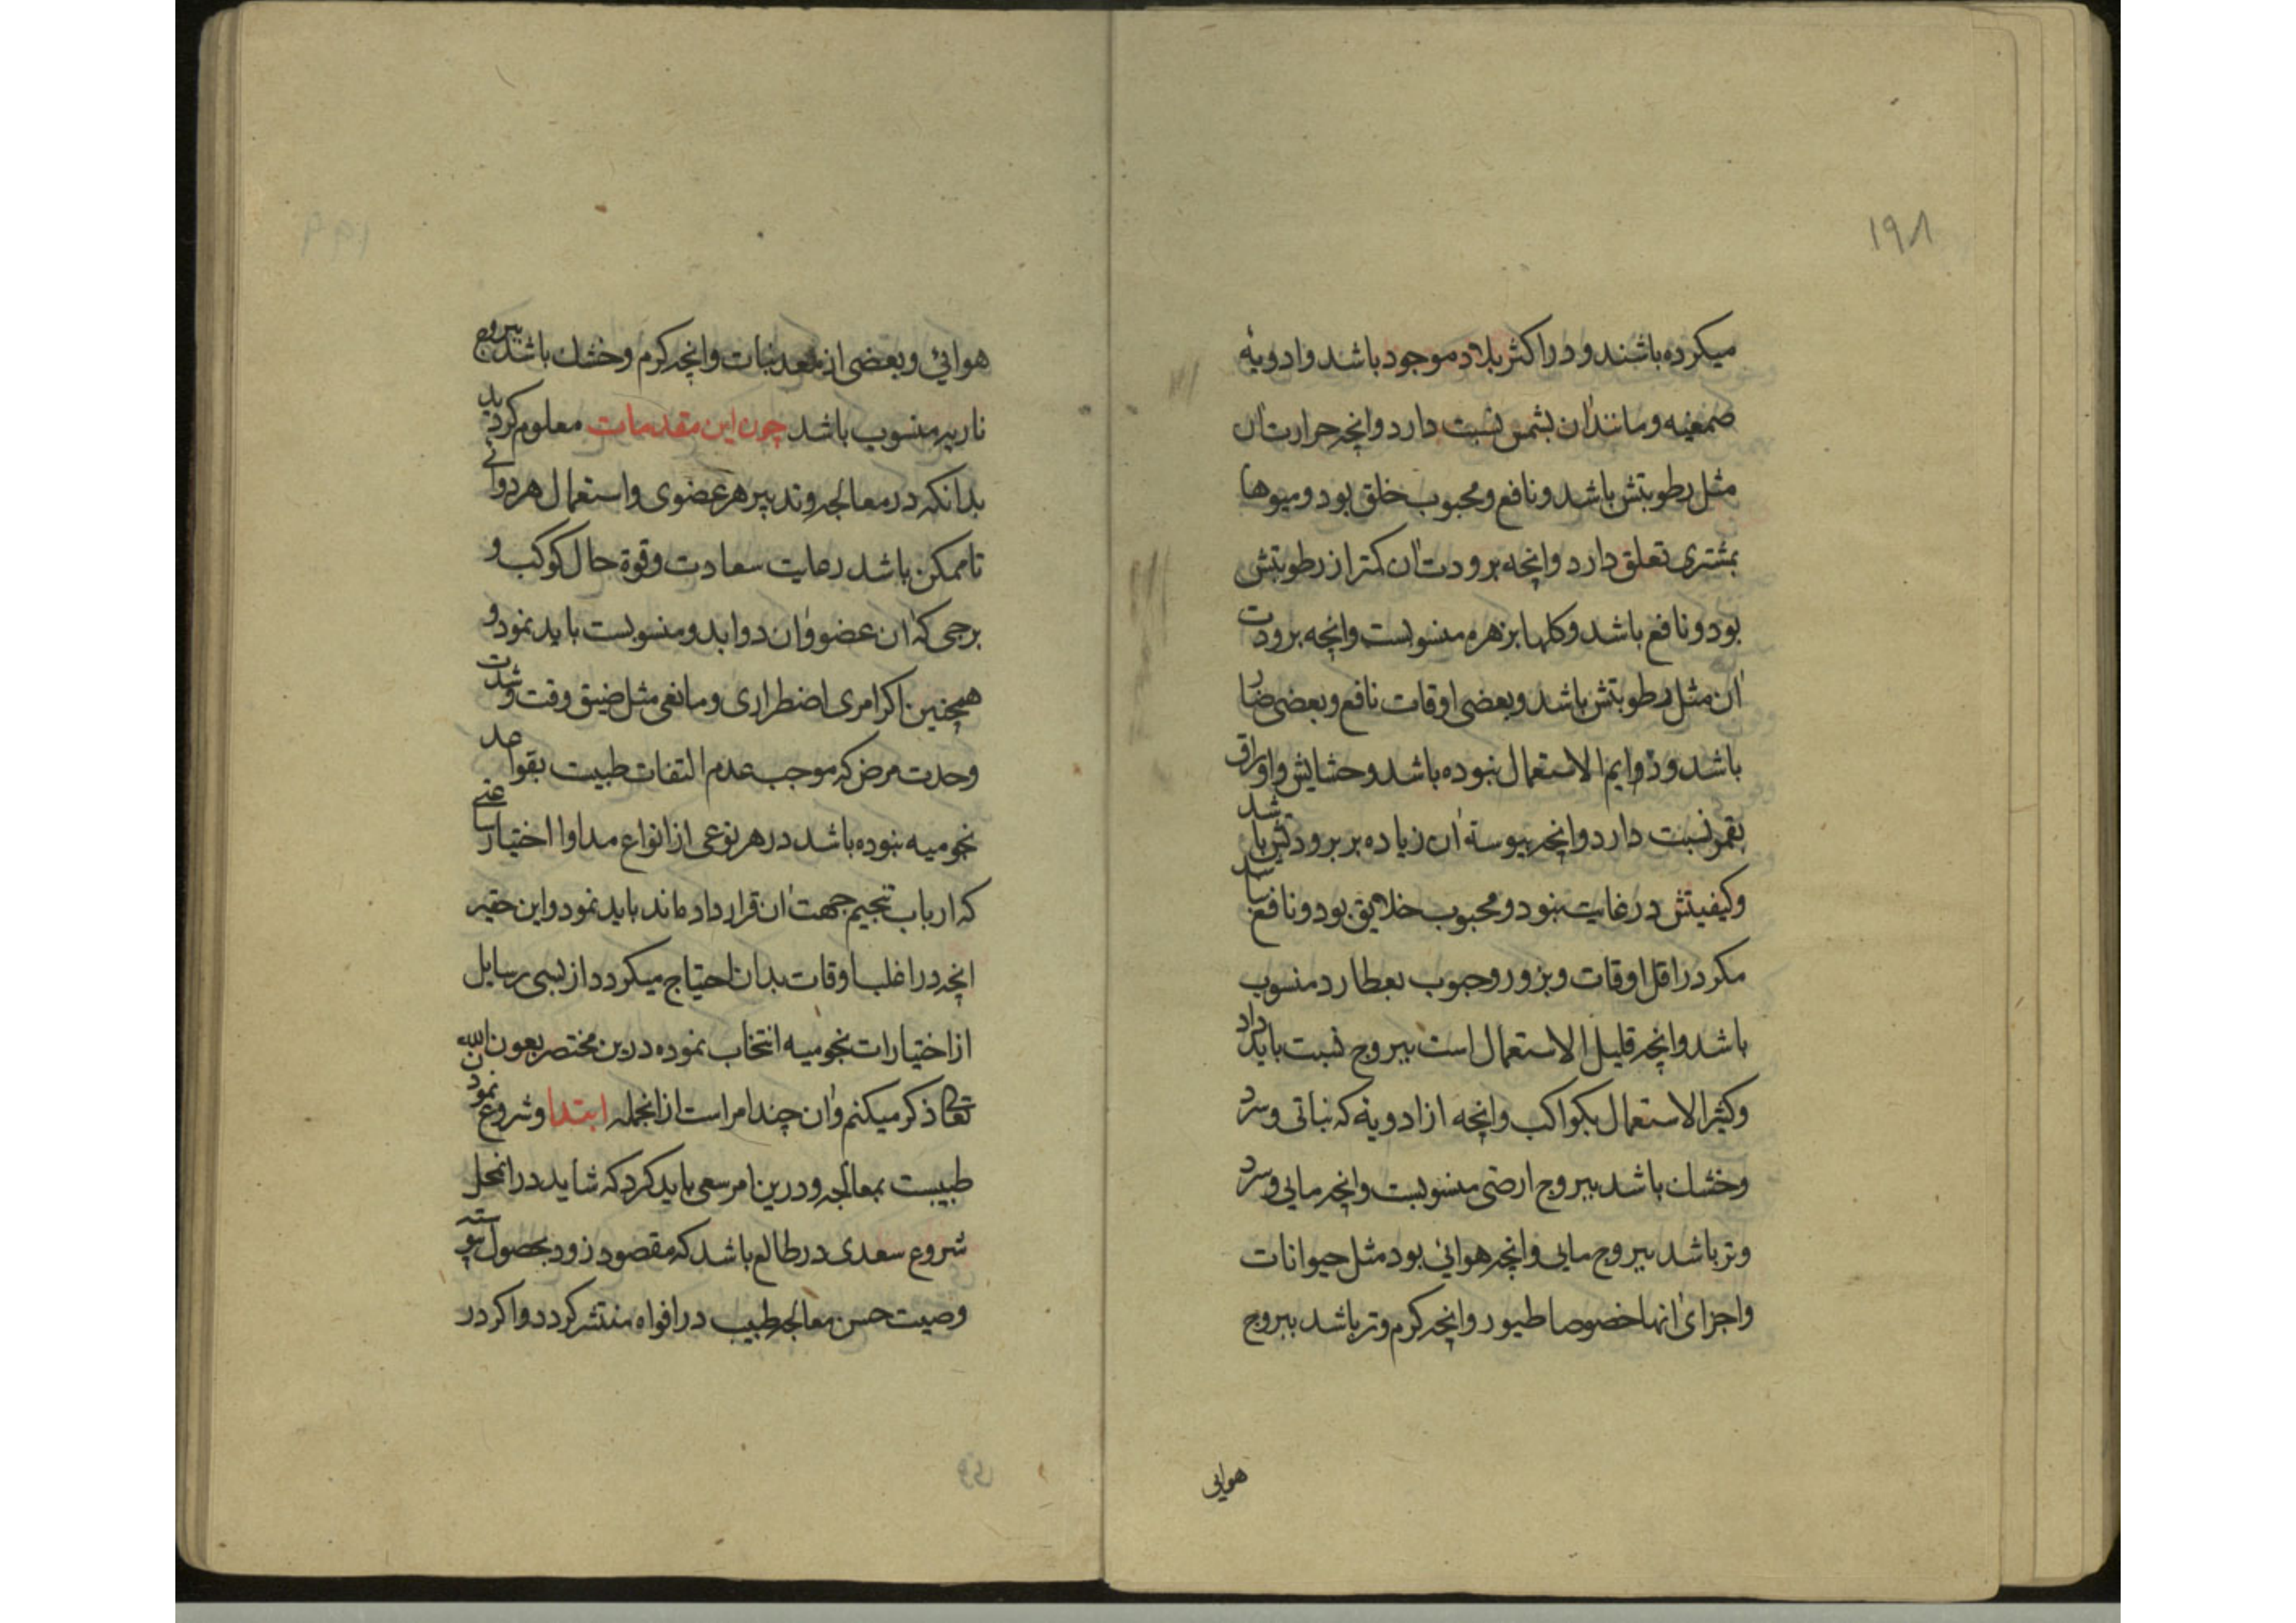 ۱۹۸
میکرده باشند و در اکثر بلاد موجود باشد وادویهٔ
صمغیه ومانند ان بشمس نسبت دارد وانچه حرارت ان
مثل رطوبتش باشد ونافع ومحبوب خلق بود ومیوها
بمشتری تعلق دارد وانچه برودت ان کمتر از رطوبتش
بود ونافع باشد وکلها بزهره منسوبست وانچه برودت
ان مثل رطوبتش باشد وبعضی اوقات نافع وبعضی ضار
باشد ودوایم الاستعمال نبوده باشد وحشایش واوراق
بقمر نسبت دارد وانچه یبوستهٔ ان زیاده بر برودتش باشد
وکیفیتش در غایت نبود ومحبوب خلایق بود ونافع نباشد
مکر در اقل اوقات وبزور وحبوب بعطارد منسوب
باشد وانچه قلیل الاستعمال است ببروج نسبت باید داد
وکثیر الاستعمال بکواکب وانچه از ادویهٔ که نباتی وسرد
وخشک باشد ببروج ارضی منسوبست وانچه مایی وسرد
وتر باشد ببروج مایی وانچه هوائی بود مثل حیوانات
واجزای انها خصوصا طیور وانچه کرم وتر باشد ببروج
هوایی
هوائی وبعضی از معدنیات وانچه کرم وخشک باشد ببروج
ناریه منسوب باشد چون این مقدمات معلوم کردید
بدانکه در معالجه وتدبیر هر عضوی واستعمال هر دوائی
تا ممکن باشد رعایت سعادت وقوة حال کوکب و
برجی که ان عضو وان دوا بدو منسوبست باید نمود و
همچنین اکر امری اضطراری ومانعی مثل ضیق وقت وشدت
وحدت مرض که موجب عدم التفات طبیت بقواعد
نجومیه نبوده باشد در هر نوعی از انواع مداوا اختیار ساعتی
که ارباب تنجیم جهت ان قرار داده‌اند باید نمود واین حقیر
انچه در اغلب اوقات بدان احتیاج میکردد از بسی رسایل
از اختیارات نجومیه انتخاب نموده درین مختصر بعون الله
تعالی ذکر میکنم وان چند امر است از انجمله ابتدا وشروع نمودن
طبیبست بمعالجه ودرین امر سعی باید کرد که شاید در انمحل
شروع سعدی در طالع باشد که مقصود زود بحصول پیوسته
وصیت حسن معالجه طبیب در افواه منتشر کردد واکر در